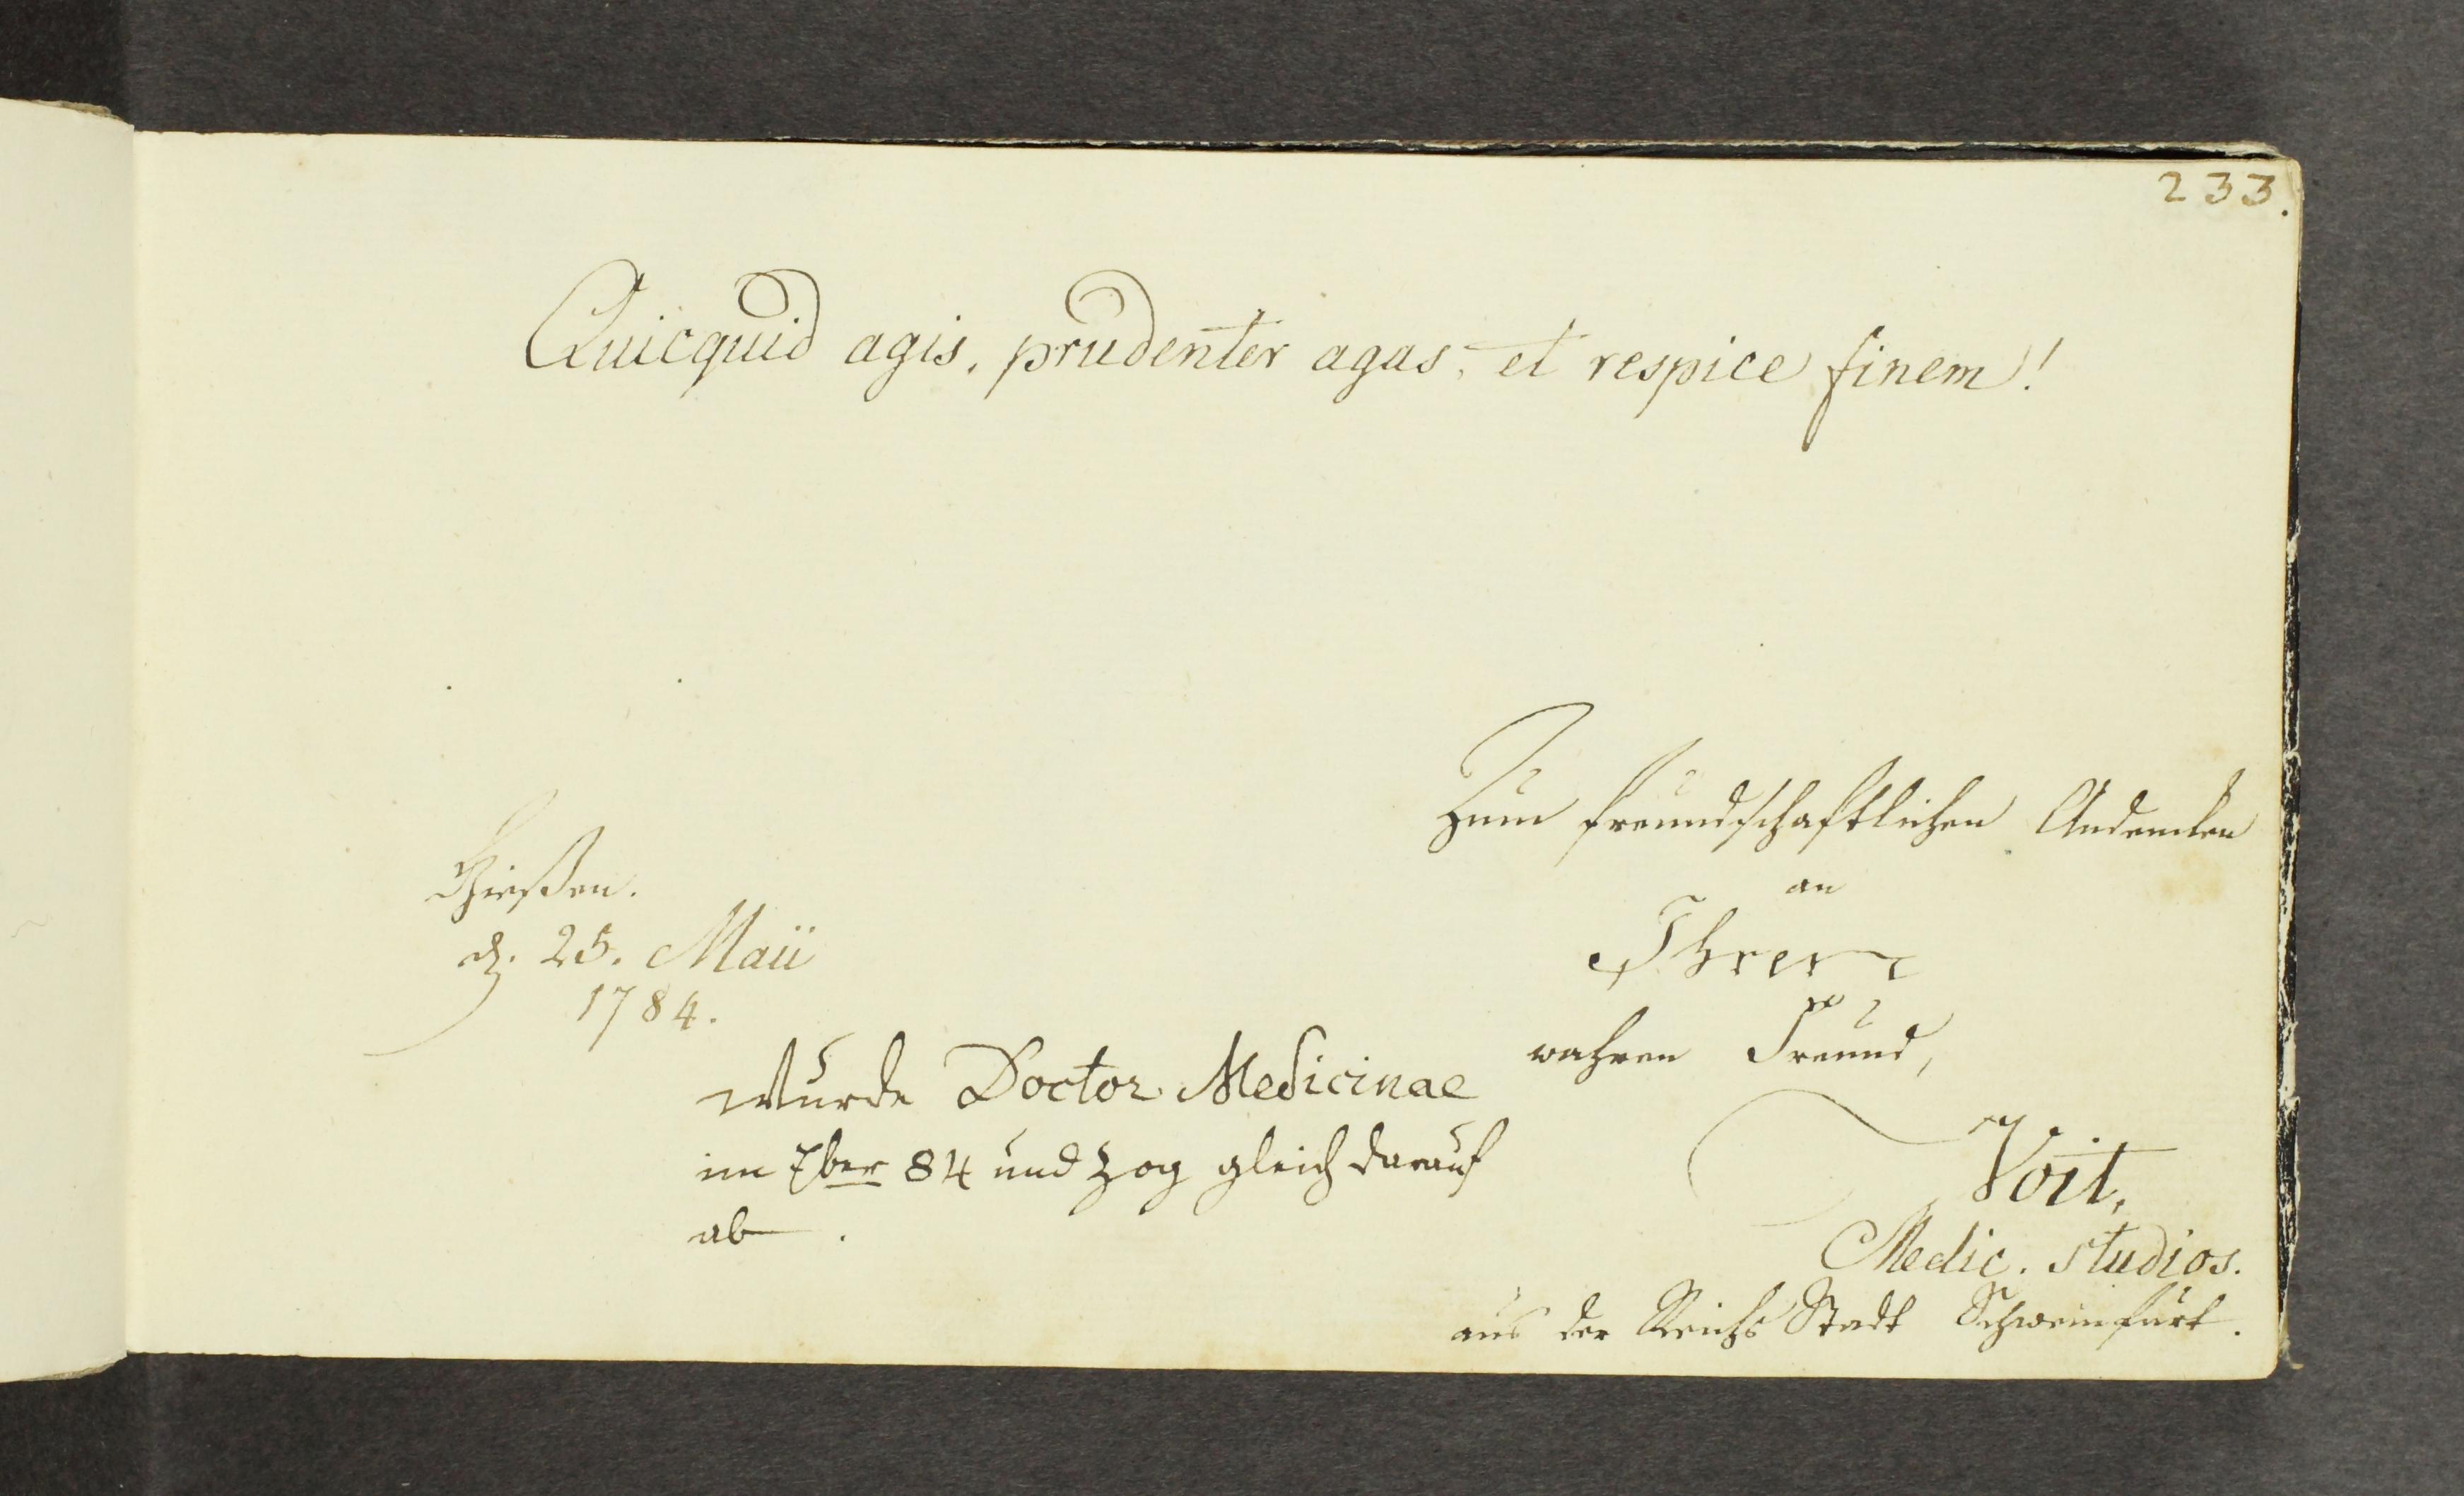 233.
Quicquid agis, prudenter agas, et respice finem!
Zum freundschaftlichen Andencken
an
Ihren
wahren Freund,
Voit,
Medic. studios.
aus der Reichs Stadt Schweinfurt.
Giesßen.
d. 25. Maii
1784.
Wurde Doctor Medicinae
im 7ber 84 und zog gleich darauf
ab.